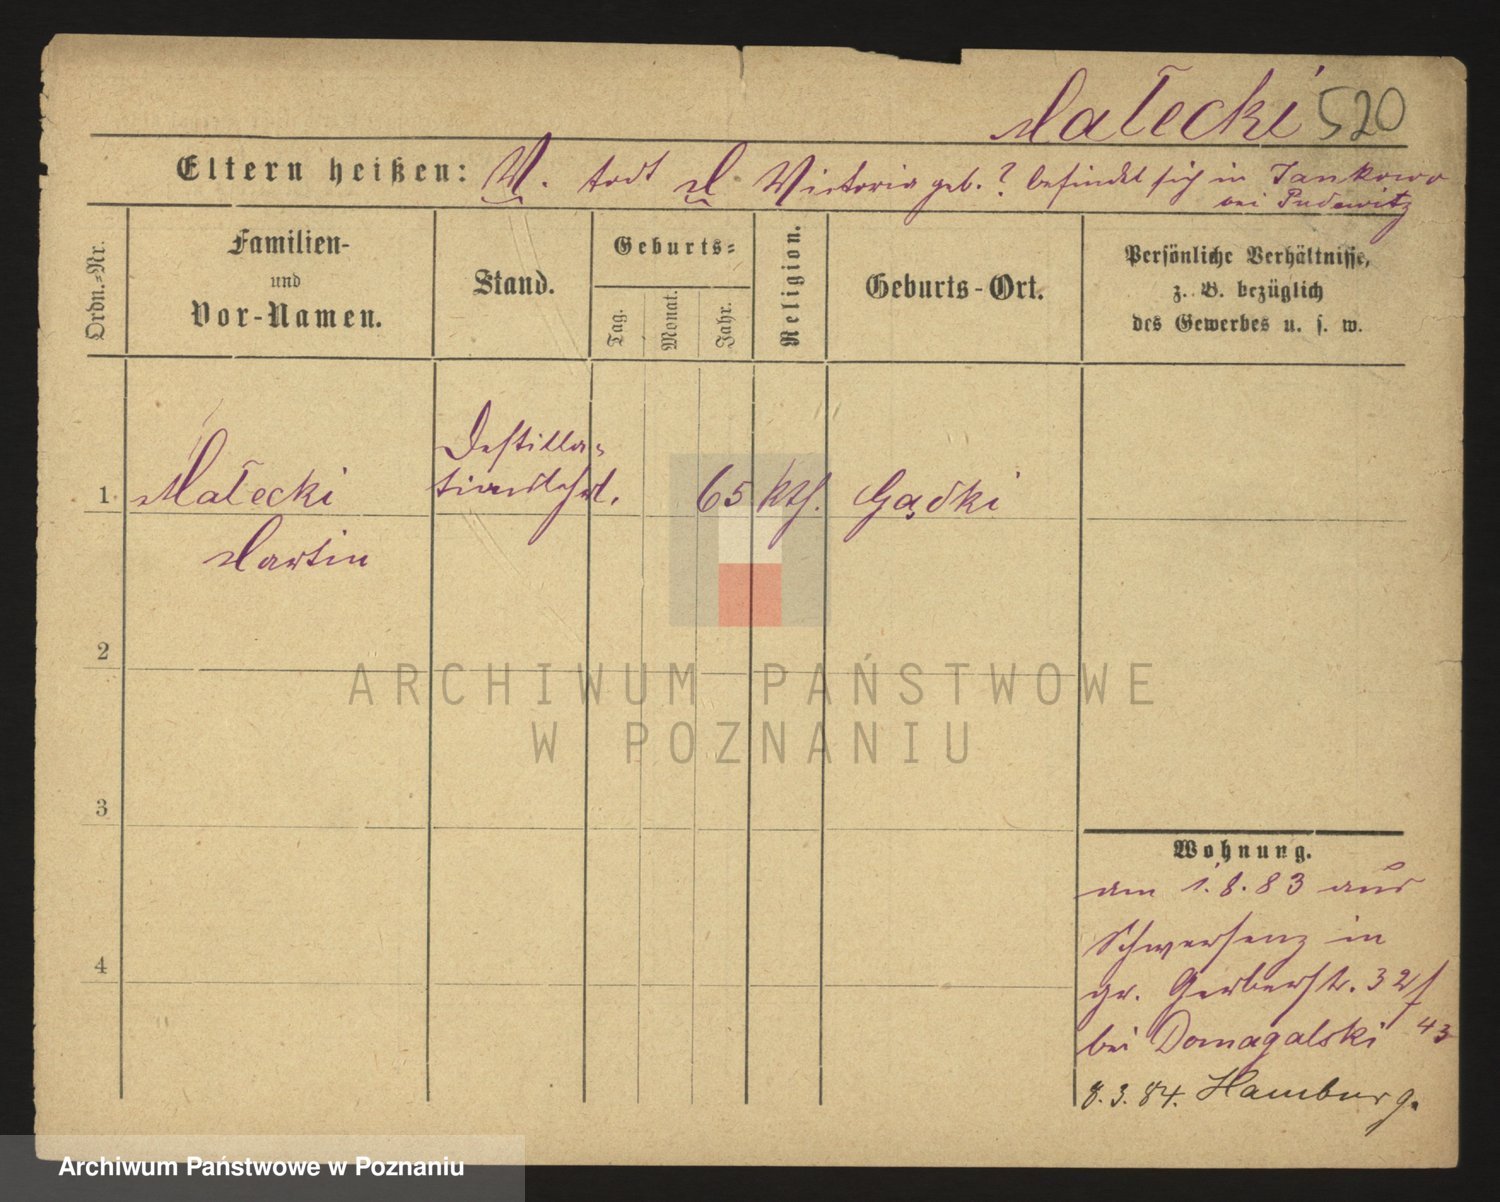 Małecki 520
Eltern heißen: V. todt M. Victoria geb. ? befindet sich in Jankowo
bei Pudewitz
Ordn.-Nr.
Familien-
und
Vor-Namen.
Stand.
Geburts-
Tag.
Monat.
Jahr.
Religion.
Geburts-Ort.
Persönliche Verhältnisse,
z. B. bezüglich
des Gewerbes u. s. w.
1. Małecki
Martin
Destilla-
tionslehrl.
65 kth. Gądki
2
3
4
Wohnung.
am 1.8.83 aus
Schwersenz in
gr. Gerberstr. 32/
bei Domagalski 43
8.3.84. Hamburg.
ARCHIWUM PAŃSTWOWE
W POZNANIU
Archiwum Państwowe w Poznaniu